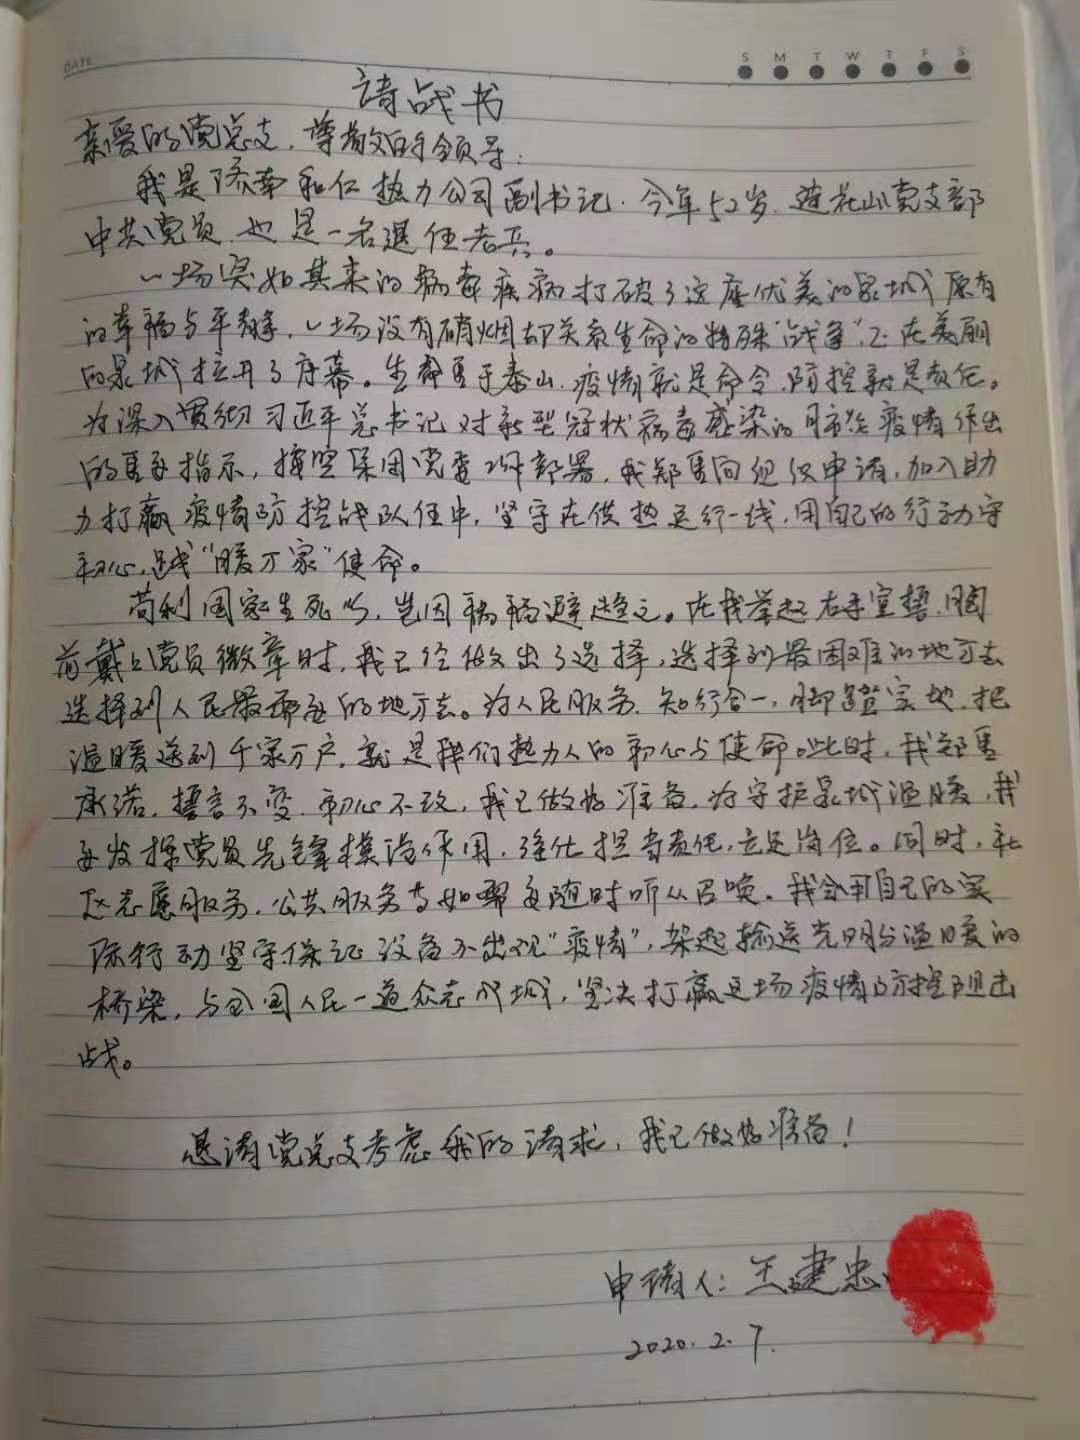 DATE
S M T W T F S
请战书
亲爱的党总支，尊敬的领导：
我是济南和仁热力公司副书记．今年52岁．莲花山党支部
中共党员．也是一名退伍老兵。
一场突如其来的病毒疾病打破了这座优美的泉城原有
的幸福与平静，一场没有硝烟却关系生命的特殊“战争”已在美丽
的泉城拉开了序幕。生命重于泰山．疫情就是命令．防控就是责任。
为深入贯彻习近平总书记对新型冠状病毒感染的肺炎疫情作出
的重要指示，按照集团党委工作部署，我郑重向组织申请，加入助
力打赢疫情防控战队伍中，坚守在供热运行一线，用自己的行动守
初心，践“暖万家”使命。
苟利国家生死以，岂因祸福避趋之。在我举起右手宣誓．胸
前戴上党员徽章时，我已经做出了选择，选择到最困难的地方去
选择到人民最需要的地方去。为人民服务．知行合一，脚踏实地．把
温暖送到千家万户，就是我们热力人的初心与使命。此时，我郑重
承诺．誓言不变．初心不改，我已做好准备．为守护泉城温暖，我
要发挥党员先锋模范作用，强化担当责任，立足岗位。同时，社
区志愿服务．公共服务等如需要随时听从召唤。我会用自己的实
际行动坚守保证设备不出现“疫情”，架起输送光明与温暖的
桥梁，与全国人民一道众志成城，坚决打赢这场疫情防控阻击
战。
恳请党总支考虑我的请求，我已做好准备！
申请人：王建忠
2020.2.7.